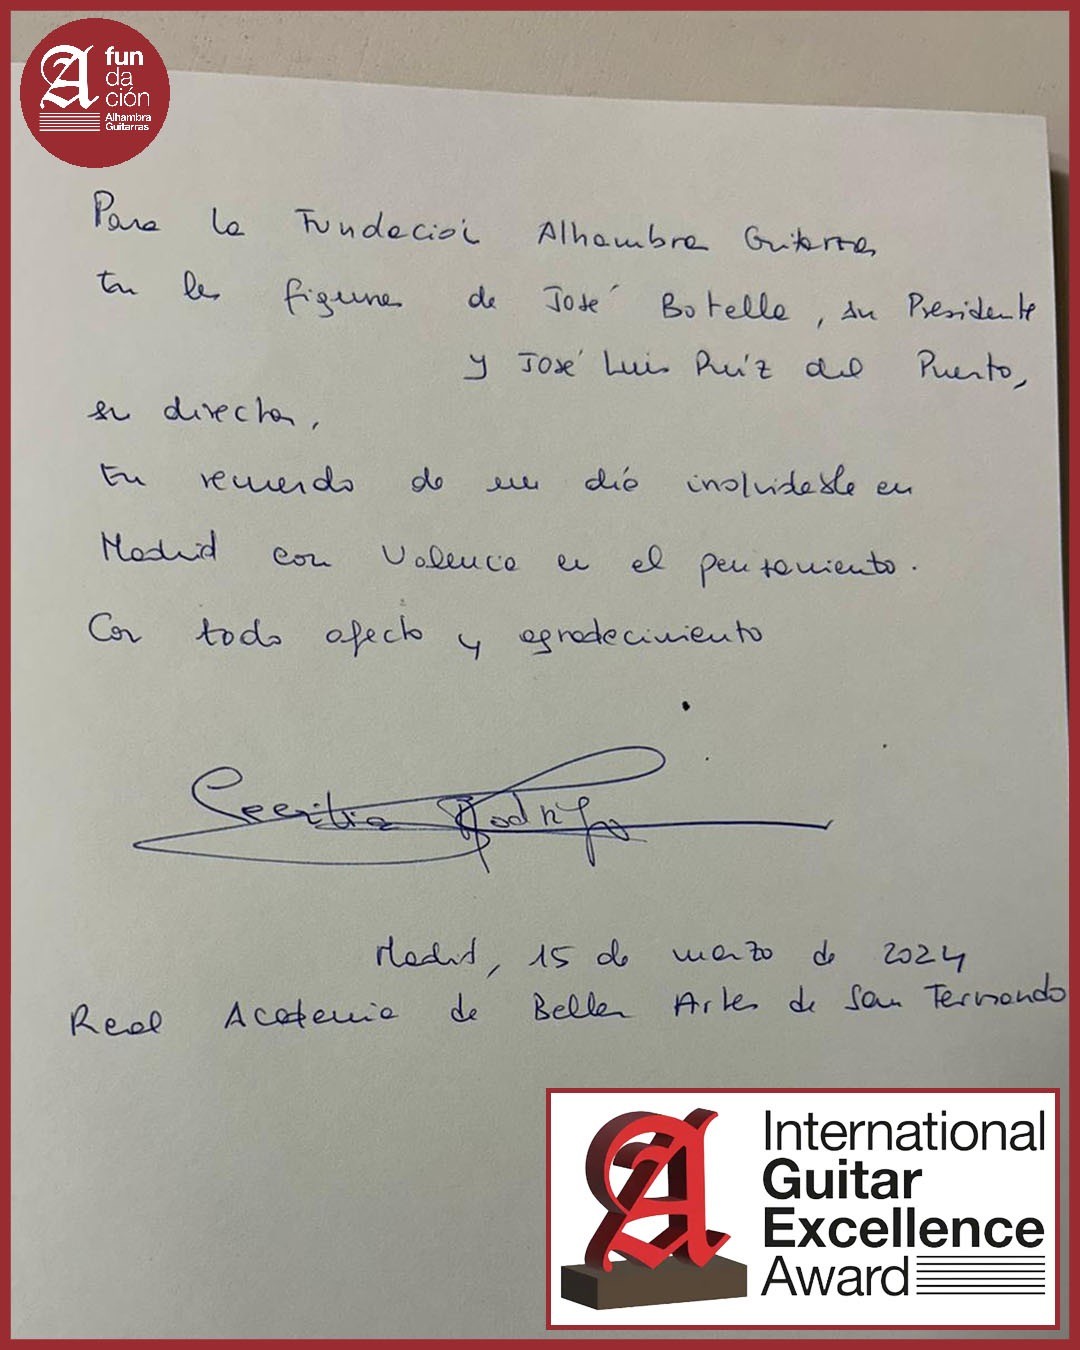 fun
da
ción
Alhambra
Guitarras
Para la Fundación Alhambra Guitarras
En las figuras de José Botella, su Presidente
y José Luis Ruíz del Puerto,
su director,
En recuerdo de un día inolvidable en
Madrid con Valencia en el pensamiento.
Con todo afecto y agradecimiento
Cecilia Rodrigo
Madrid, 15 de marzo de 2024
Real Academia de Bellas Artes de San Fernando
International
Guitar
Excellence
Award